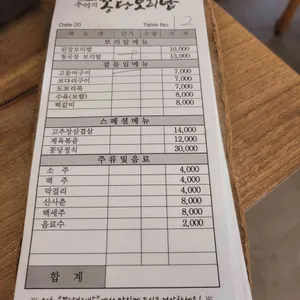 추억의 손두보리밥
Date 20 Table No. 2
메 뉴 명 단가 수량 가 격
보리밥메뉴
된장보리밥 10,000
청국장 보리밥 13,000
곁들임메뉴
고등어구이 7,000
코다리구이 7,000
도토리묵 7,000
수육(보쌈) 8,000
떡갈비 8,000
스페셜메뉴
고추장삼겹살 14,000
제육볶음 12,000
꽁당정식 30,000
주류및음료
소 주 4,000
맥 주 4,000
막걸리 4,000
산사춘 8,000
백세주 8,000
음료수 2,000
합 계